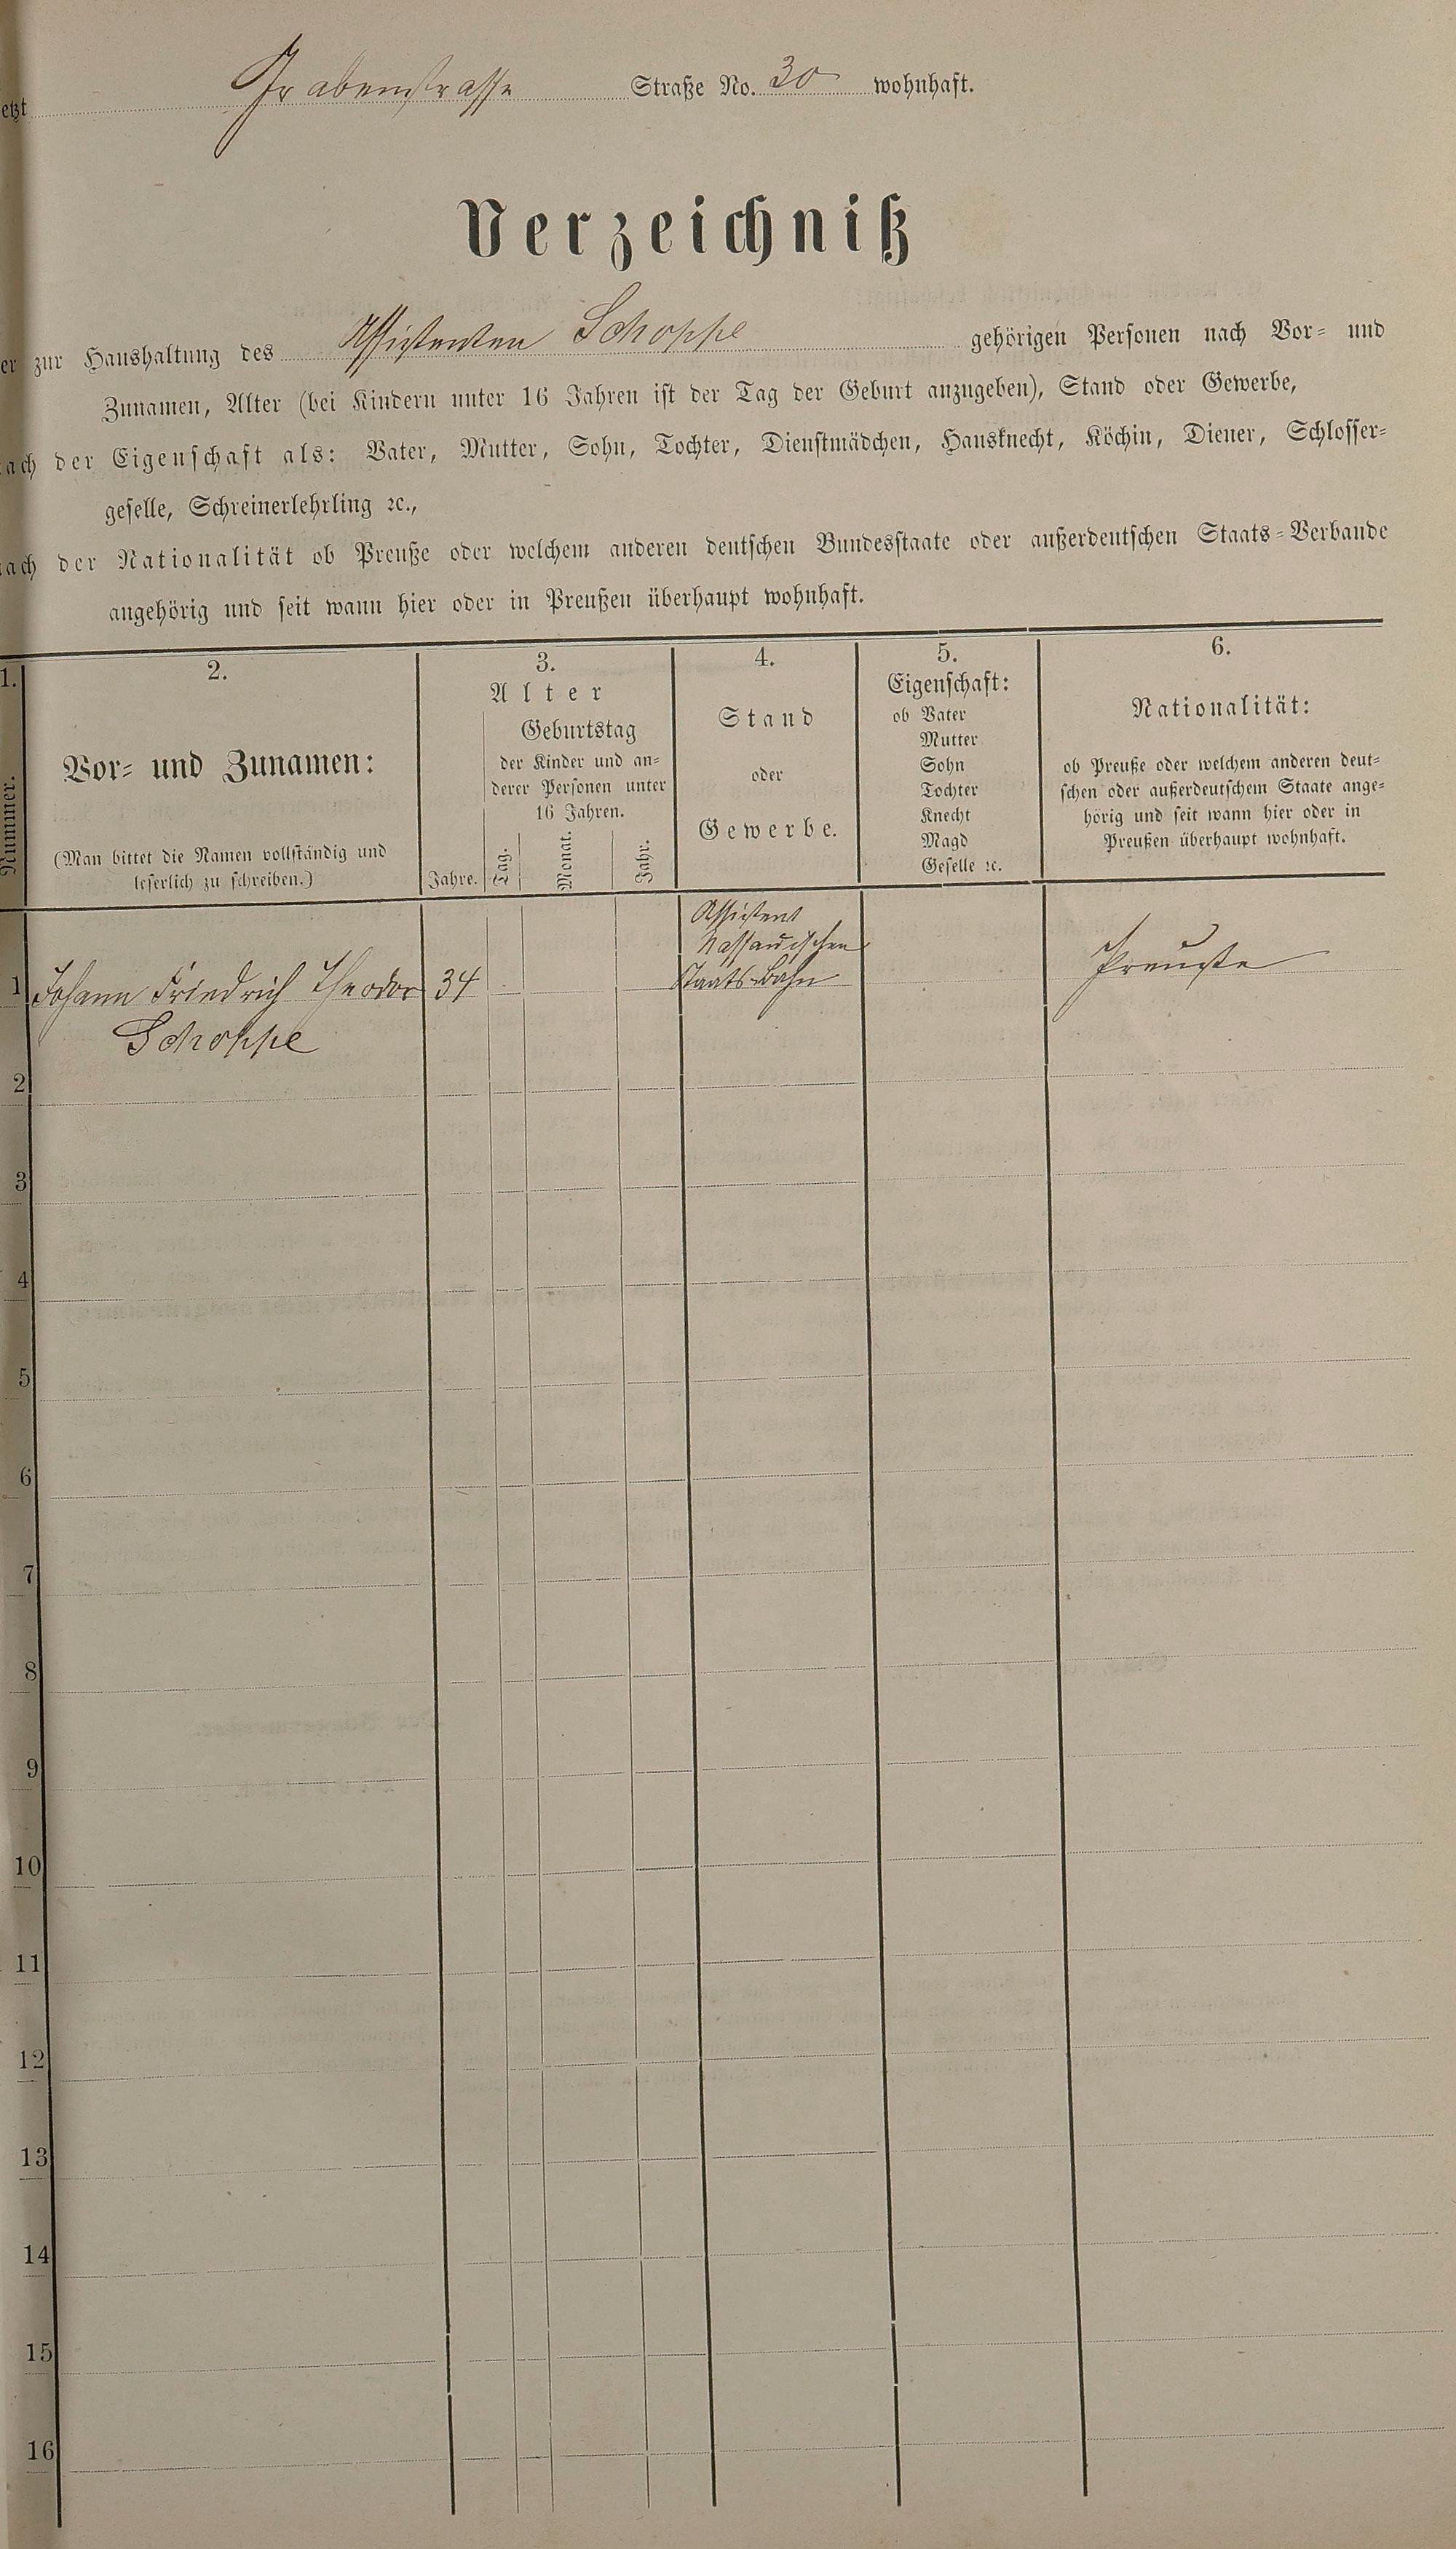 etzt Grabenstrasse Straße No. 30 wohnhaft.
Verzeichniß
er zur Haushaltung des Assistenten Schoppe gehörigen Personen nach Vor- und
Zunamen, Alter (bei Kindern unter 16 Jahren ist der Tag der Geburt anzugeben), Stand oder Gewerbe,
nach der Eigenschaft als: Vater, Mutter, Sohn, Tochter, Dienstmädchen, Hausknecht, Köchin, Diener, Schlosser-
geselle, Schreinerlehrling ꝛc.,
nach der Nationalität ob Preuße oder welchem anderen deutschen Bundesstaate oder außerdeutschen Staats-Verbande
angehörig und seit wann hier oder in Preußen überhaupt wohnhaft.
1.
Nummer.
2.
Vor- und Zunamen:
(Man bittet die Namen vollständig und
leserlich zu schreiben.)
3.
Alter
Jahre.
Geburtstag
der Kinder und an-
derer Personen unter
16 Jahren.
Tag.
Monat.
Jahr.
4.
Stand
oder
Gewerbe.
5.
Eigenschaft:
ob Vater
Mutter
Sohn
Tochter
Knecht
Magd
Geselle ꝛc.
6.
Nationalität:
ob Preuße oder welchem anderen deut-
schen oder außerdeutschem Staate ange-
hörig und seit wann hier oder in
Preußen überhaupt wohnhaft.
1
Johann Friedrich Theodor
Schoppe
34
Assistent
Nassauischen
Staats-Bahn
Preuße
2
3
4
5
6
7
8
9
10
11
12
13
14
15
16